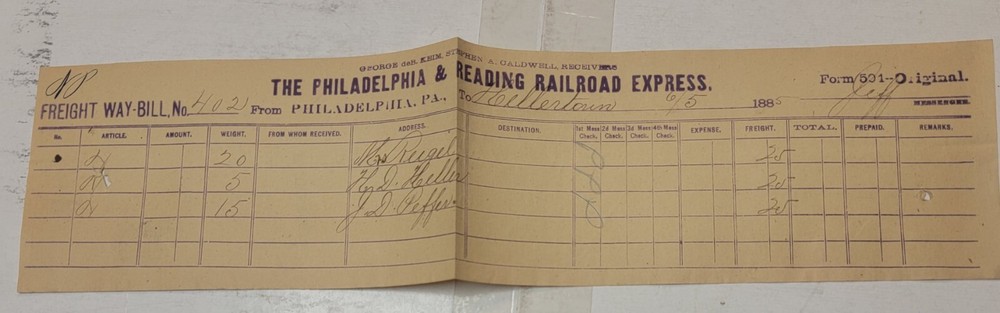 GEORGE deB. KEIM, STEPHEN A. CALDWELL, RECEIVERS
THE PHILADELPHIA & READING RAILROAD EXPRESS.
Form 531--Original.
FREIGHT WAY-BILL, No. 402 From PHILADELPHIA, PA., To Hellertown 6/5 1885 Jeff MESSENGER.
No. ARTICLE. AMOUNT. WEIGHT. FROM WHOM RECEIVED. ADDRESS. DESTINATION. 1st Mess Check. 2d Mess Check. 3d Mess Check. 4th Mess Check. EXPENSE, FREIGHT. TOTAL. PREPAID. REMARKS.
20 25
5 H. D. Heller 25
15 J. D. Peffer 25